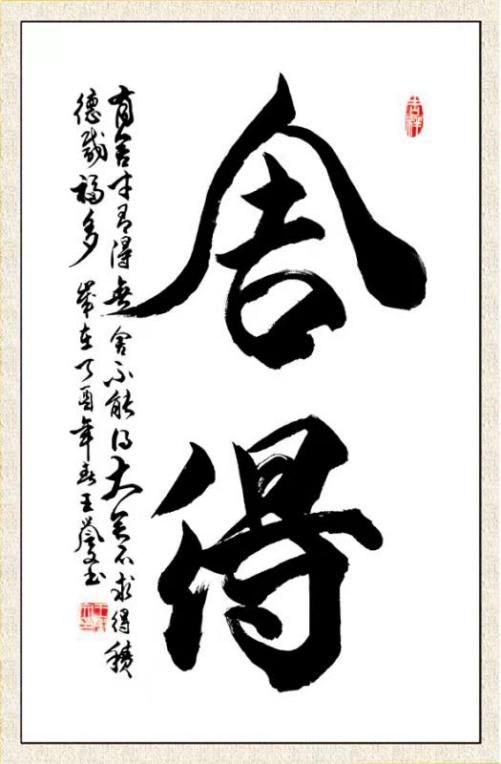 吉祥
舍得
有舍才有得無舍不能得大舍不求得積
德福多歲在丁酉年春王書